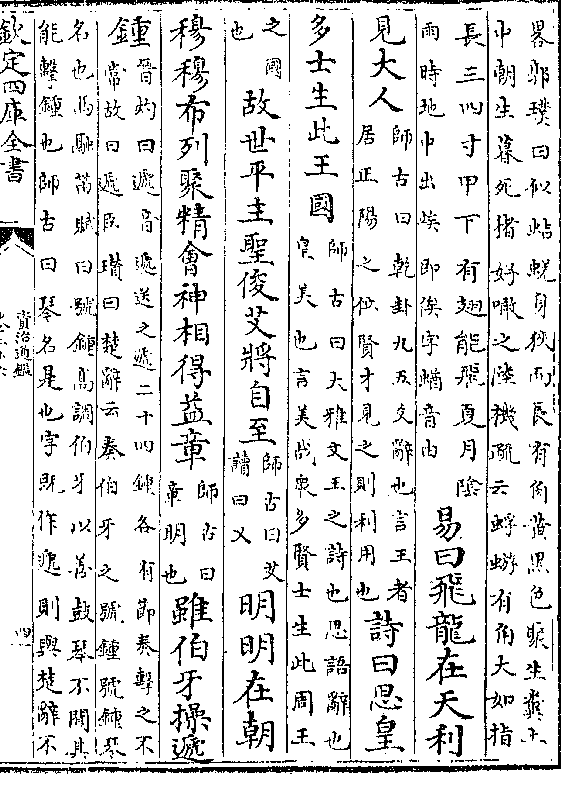 畧郭璞曰似蛣蜣身狹而長有角黄黑色聚生糞土
中朝生暮死猪好噉之陸機疏云蜉蝣有角大如指
長三四寸甲下有翅能飛夏月隂
雨時地中出埃即俟字蝤音由
易曰飛龍在天利
見大人
師古曰乾卦九五爻辭也言王者
居正陽之位賢才見之則利用也
詩曰思皇
多士生此王國
師古曰大雅文王之詩也思語辭也
皇美也言美哉衆多賢士生此周王
之國
也
故世平主聖俊艾將自至
師古曰艾
讀曰乂
明明在朝
穆穆布列聚精會神相得益章
師古曰
章明也
雖伯牙操遞
鍾
晉灼曰遞音遞送之遞二十四鍾各有節奏擊之不
常故曰遞臣瓚曰楚辭云奏伯牙之號鍾號鍾琴
名也馬融笛賦曰號鍾高調伯牙以善鼓琴不聞其
能擊鍾也師古曰琴名是也字既作遞則與楚辭不
欽定四庫全書
資治通鑑
四